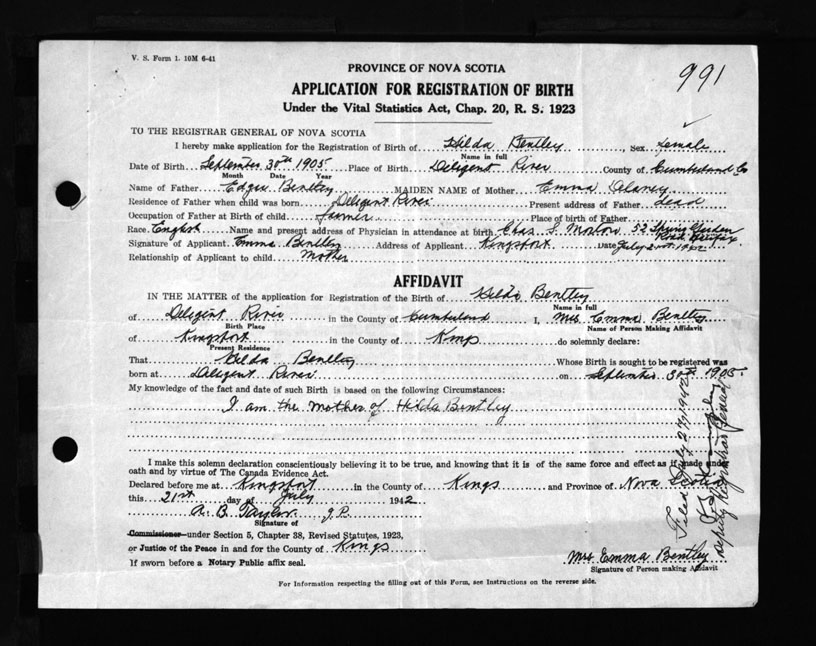 V. S. Form 1. 10M 6-41
991
PROVINCE OF NOVA SCOTIA
APPLICATION FOR REGISTRATION OF BIRTH
Under the Vital Statistics Act, Chap. 20, R. S. 1923
TO THE REGISTRAR GENERAL OF NOVA SCOTIA
I hereby make application for the Registration of Birth of Hilda Bentley, Sex Female
Name in full
Date of Birth September 30th 1905 Place of Birth Diligent River County of Cumberland Co
Month Date Year
Name of Father Edgar Bentley MAIDEN NAME of Mother Emma
Residence of Father when child was born Diligent River Present address of Father Dead
Occupation of Father at Birth of child farmer Place of birth of Father
Race English Name and present address of Physician in attendance at birth Chas S. Morton 52 Spring Garden Road Halifax
Signature of Applicant Emma Bentley Address of Applicant Kingsport Date July 1942
Relationship of Applicant to child Mother
AFFIDAVIT
IN THE MATTER of the application for Registration of the Birth of Hilda Bentley
Name in full
of Diligent River in the County of Cumberland I, Mrs Emma Bentley
Birth Place Name of Person Making Affidavit
of Kingsport in the County of Kings do solemnly declare:
Present Residence
That Hilda Bentley Whose Birth is sought to be registered was
born at Diligent River on September 30th 1905
My knowledge of the fact and date of such Birth is based on the following Circumstances:
I am the Mother of Hilda Bentley
I make this solemn declaration conscientiously believing it to be true, and knowing that it is of the same force and effect as if made under
oath and by virtue of The Canada Evidence Act.
Declared before me at Kingsport in the County of Kings and Province of Nova Scotia
this 21st day of July 1942
A. B. Taylor J.P.
Signature of
Commissioner under Section 5, Chapter 38, Revised Statutes, 1923,
or Justice of the Peace in and for the County of Kings
If sworn before a Notary Public affix seal.
Mrs Emma Bentley
Signature of Person making Affidavit
For Information respecting the filling out of this Form, see Instructions on the reverse side.
Filed July 27, 1942
Deputy Registrar General